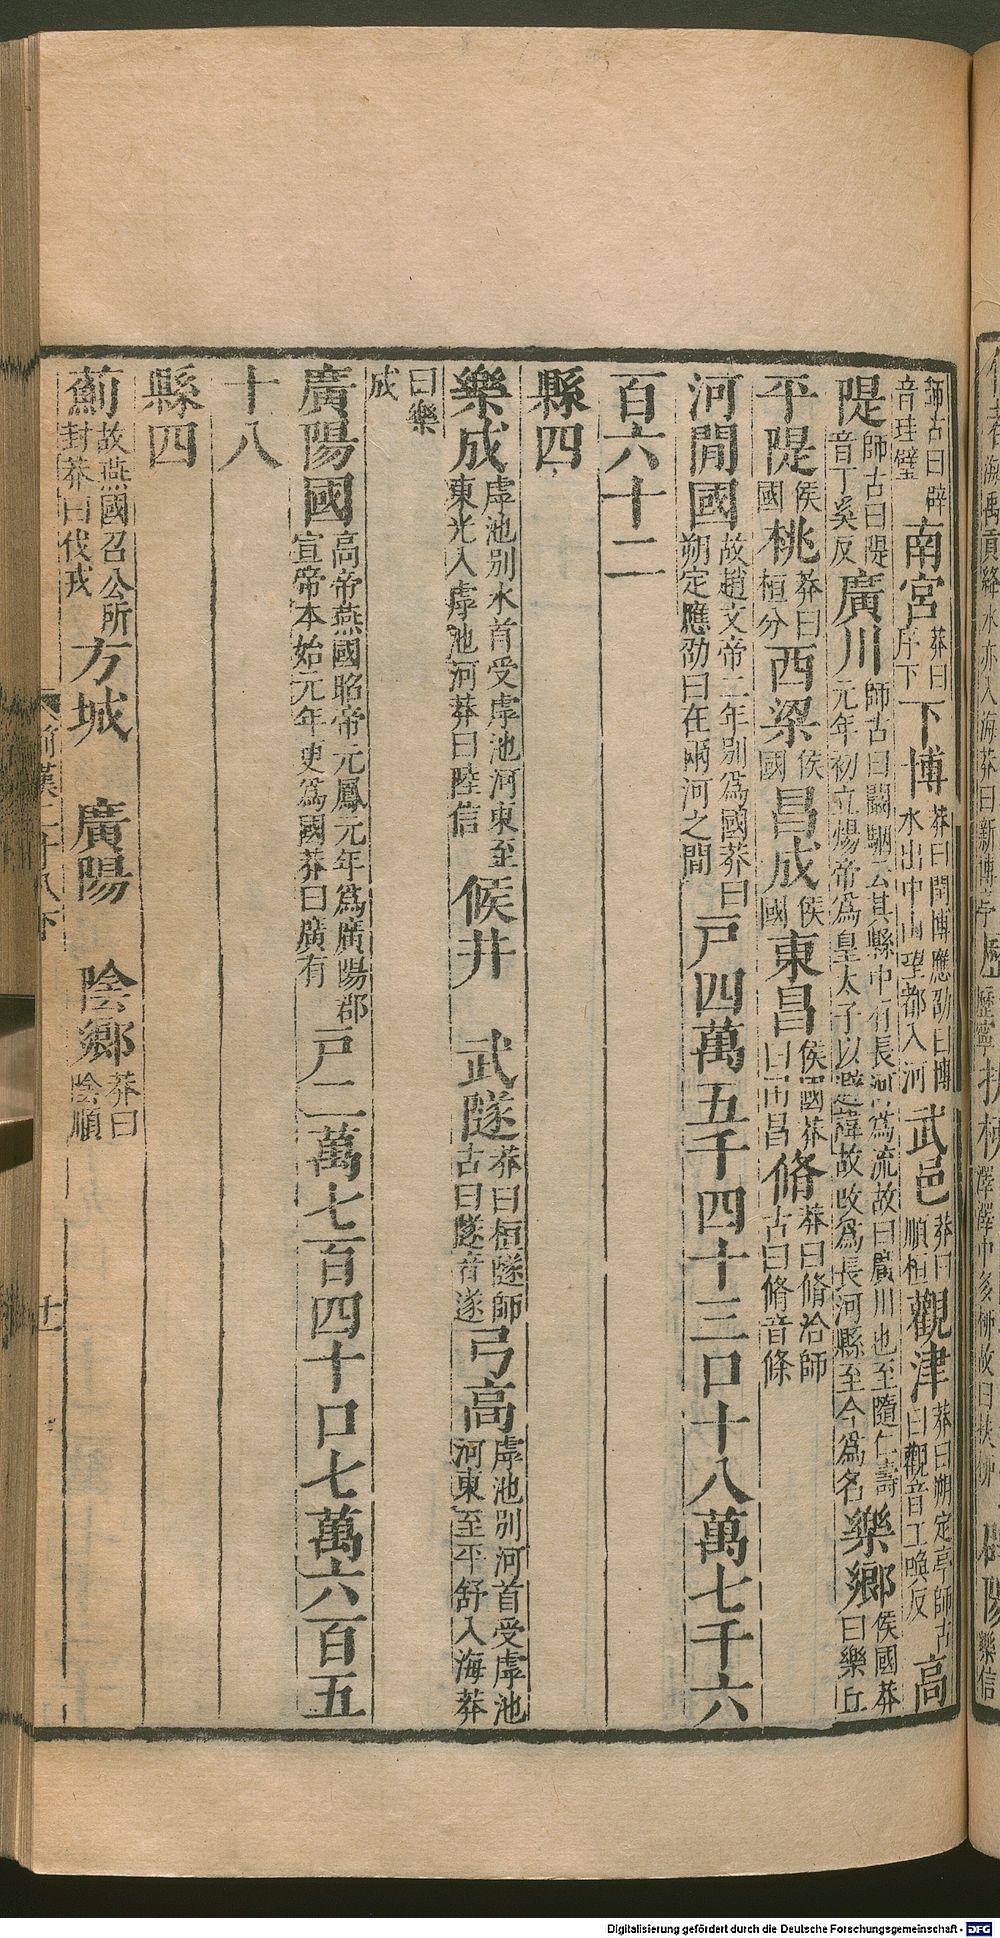 師古曰辟音珪璧南宮莽曰序下下博莽曰閏博應劭曰博水出中山望都入河武邑莽曰順桓觀津莽曰朔定亭師古曰觀音工喚反高
隄師古曰隄音丁奚反廣川師古曰闞駰云其縣中有長河爲流故曰廣川也至隨仁壽元年初立煬帝爲皇太子以避諱故改爲長河縣至今爲名樂鄉侯國莽曰樂丘
平隄侯國桃莽曰桓分西梁侯國昌成侯國東昌侯國莽曰田昌脩莽曰脩治師古曰脩音條
河閒國故趙文帝二年別爲國莽曰朔定應劭曰在兩河之間戸四萬五千四十三口十八萬七千六
百六十二
縣四
樂成虖池別水首受虖池河東至東光入虖池河莽曰陸信候井 武隧莽曰桓隧師古曰隧音遂弓高虖池別河首受虖池河東至平舒入海莽
曰樂成
廣陽國高帝燕國昭帝元鳳元年爲廣陽郡宣帝本始元年更爲國莽曰廣有戸二萬七百四十口七萬六百五
十八
縣四
薊故燕國召公所封莽曰伐戎方城 廣陽 陰鄉莽曰陰順
前漢二十八下
十一
Digitalisierung gefördert durch die Deutsche Forschungsgemeinschaft - DFG